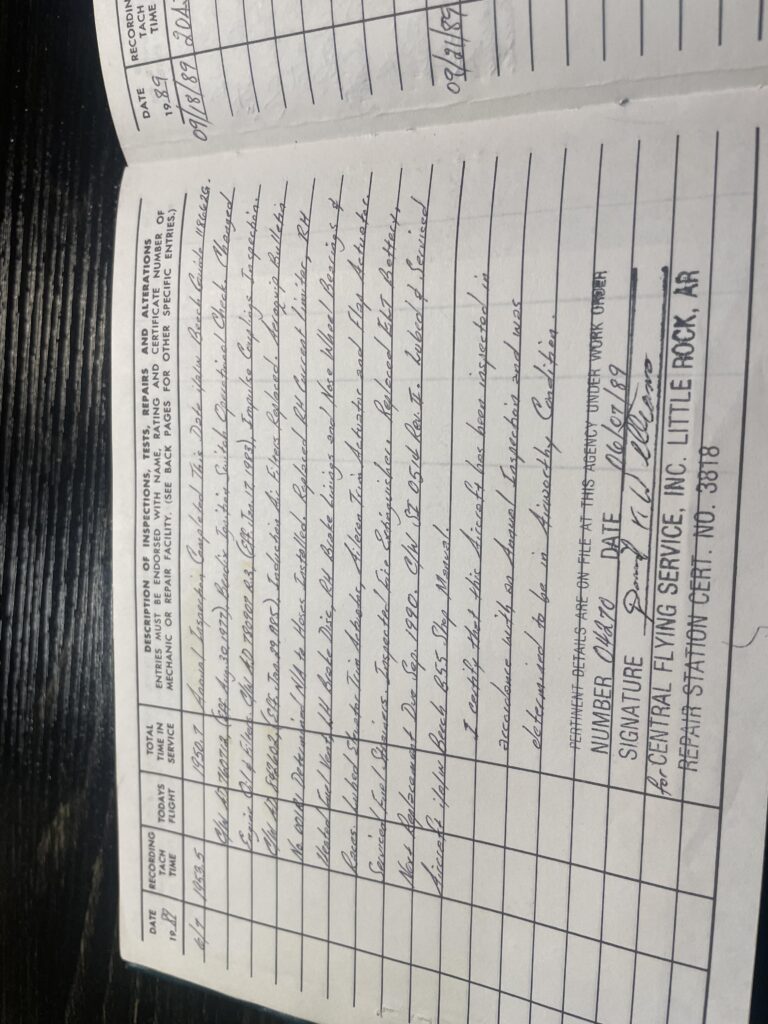 DATE
1989
RECORDING
TACH
TIME
TODAYS
FLIGHT
TOTAL
TIME IN
SERVICE
DESCRIPTION OF INSPECTIONS, TESTS, REPAIRS AND ALTERATIONS
ENTRIES MUST BE ENDORSED WITH NAME, RATING AND CERTIFICATE NUMBER OF
MECHANIC OR REPAIR FACILITY. (SEE BACK PAGES FOR OTHER SPECIFIC ENTRIES.)
6/7 1950.5 1950.7 Annual Inspection Completed This Date Beech Guide
C/W AD (Eff Aug. 30, 1977) Ignition Switch Operational Check. Changed
Engine Oil & Filters. C/W AD R3, (Eff. Jan. 17, 1983) Impulse Coupling Inspection.
C/W AD Induction Air Filters Replaced. Bulletin
No. Determined N/A to Installed. Replaced RH Current Limiter, RH
Heated Fuel Vent, LH Brake Disc, RH Brake Linings and Nose Wheel Bearings &
Races. Lubed Trim Actuator, Aileron Trim Actuator and Flap Actuator.
Serviced Fuel Strainers. Inspected Fire Extinguisher. Replaced ELT Battery,
Next Replacement Due Sep. 1990. C/W Rev. II. Lubed & Serviced
Aircraft Beech B55 Shop Manual.
I certify that this Aircraft has been inspected in
accordance with an Annual Inspection and was
determined to be in Airworthy Condition.
PERTINENT DETAILS ARE ON FILE AT THIS AGENCY UNDER WORK ORDER
NUMBER 04270 DATE 06/07/89
SIGNATURE
for CENTRAL FLYING SERVICE, INC. LITTLE ROCK, AR
REPAIR STATION CERT. NO. 3818
DATE
1989
RECORDIN
TACH
TIME
09/18/89 204
09/21/89